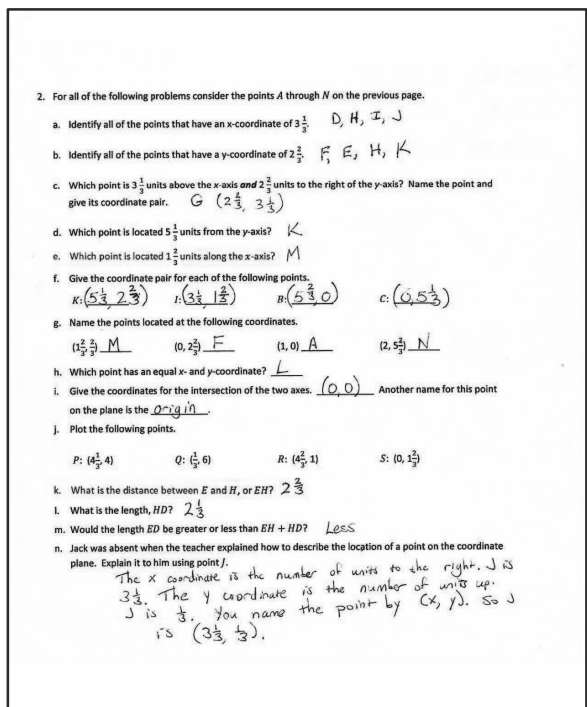 2. For all of the following problems consider the points A through N on the previous page.
a. Identify all of the points that have an x-coordinate of 3 1/3. D, H, I, J
b. Identify all of the points that have a y-coordinate of 2 2/3. F, E, H, K
c. Which point is 3 1/3 units above the x-axis and 2 2/3 units to the right of the y-axis? Name the point and
give its coordinate pair. G (2 2/3, 3 1/3)
d. Which point is located 5 1/3 units from the y-axis? K
e. Which point is located 1 2/3 units along the x-axis? M
f. Give the coordinate pair for each of the following points.
K: (5 1/3, 2 2/3) I: (3 1/3, 1 2/3) B: (5 2/3, 0) C: (0, 5 1/3)
g. Name the points located at the following coordinates.
(1 2/3, 2/3) M (0, 2 2/3) F (1, 0) A (2, 5 2/3) N
h. Which point has an equal x- and y-coordinate? L
i. Give the coordinates for the intersection of the two axes. (0,0) Another name for this point
on the plane is the origin.
j. Plot the following points.
P: (4 1/3, 4) Q: (1/3, 6) R: (4 2/3, 1) S: (0, 1 2/3)
k. What is the distance between E and H, or EH? 2 2/3
l. What is the length, HD? 2 1/3
m. Would the length ED be greater or less than EH + HD? Less
n. Jack was absent when the teacher explained how to describe the location of a point on the coordinate
plane. Explain it to him using point J.
The x coordinate is the number of units to the right. J is
3 1/3. The y coordinate is the number of units up.
J is 1/3. You name the point by (x, y). So J
is (3 1/3, 1/3).